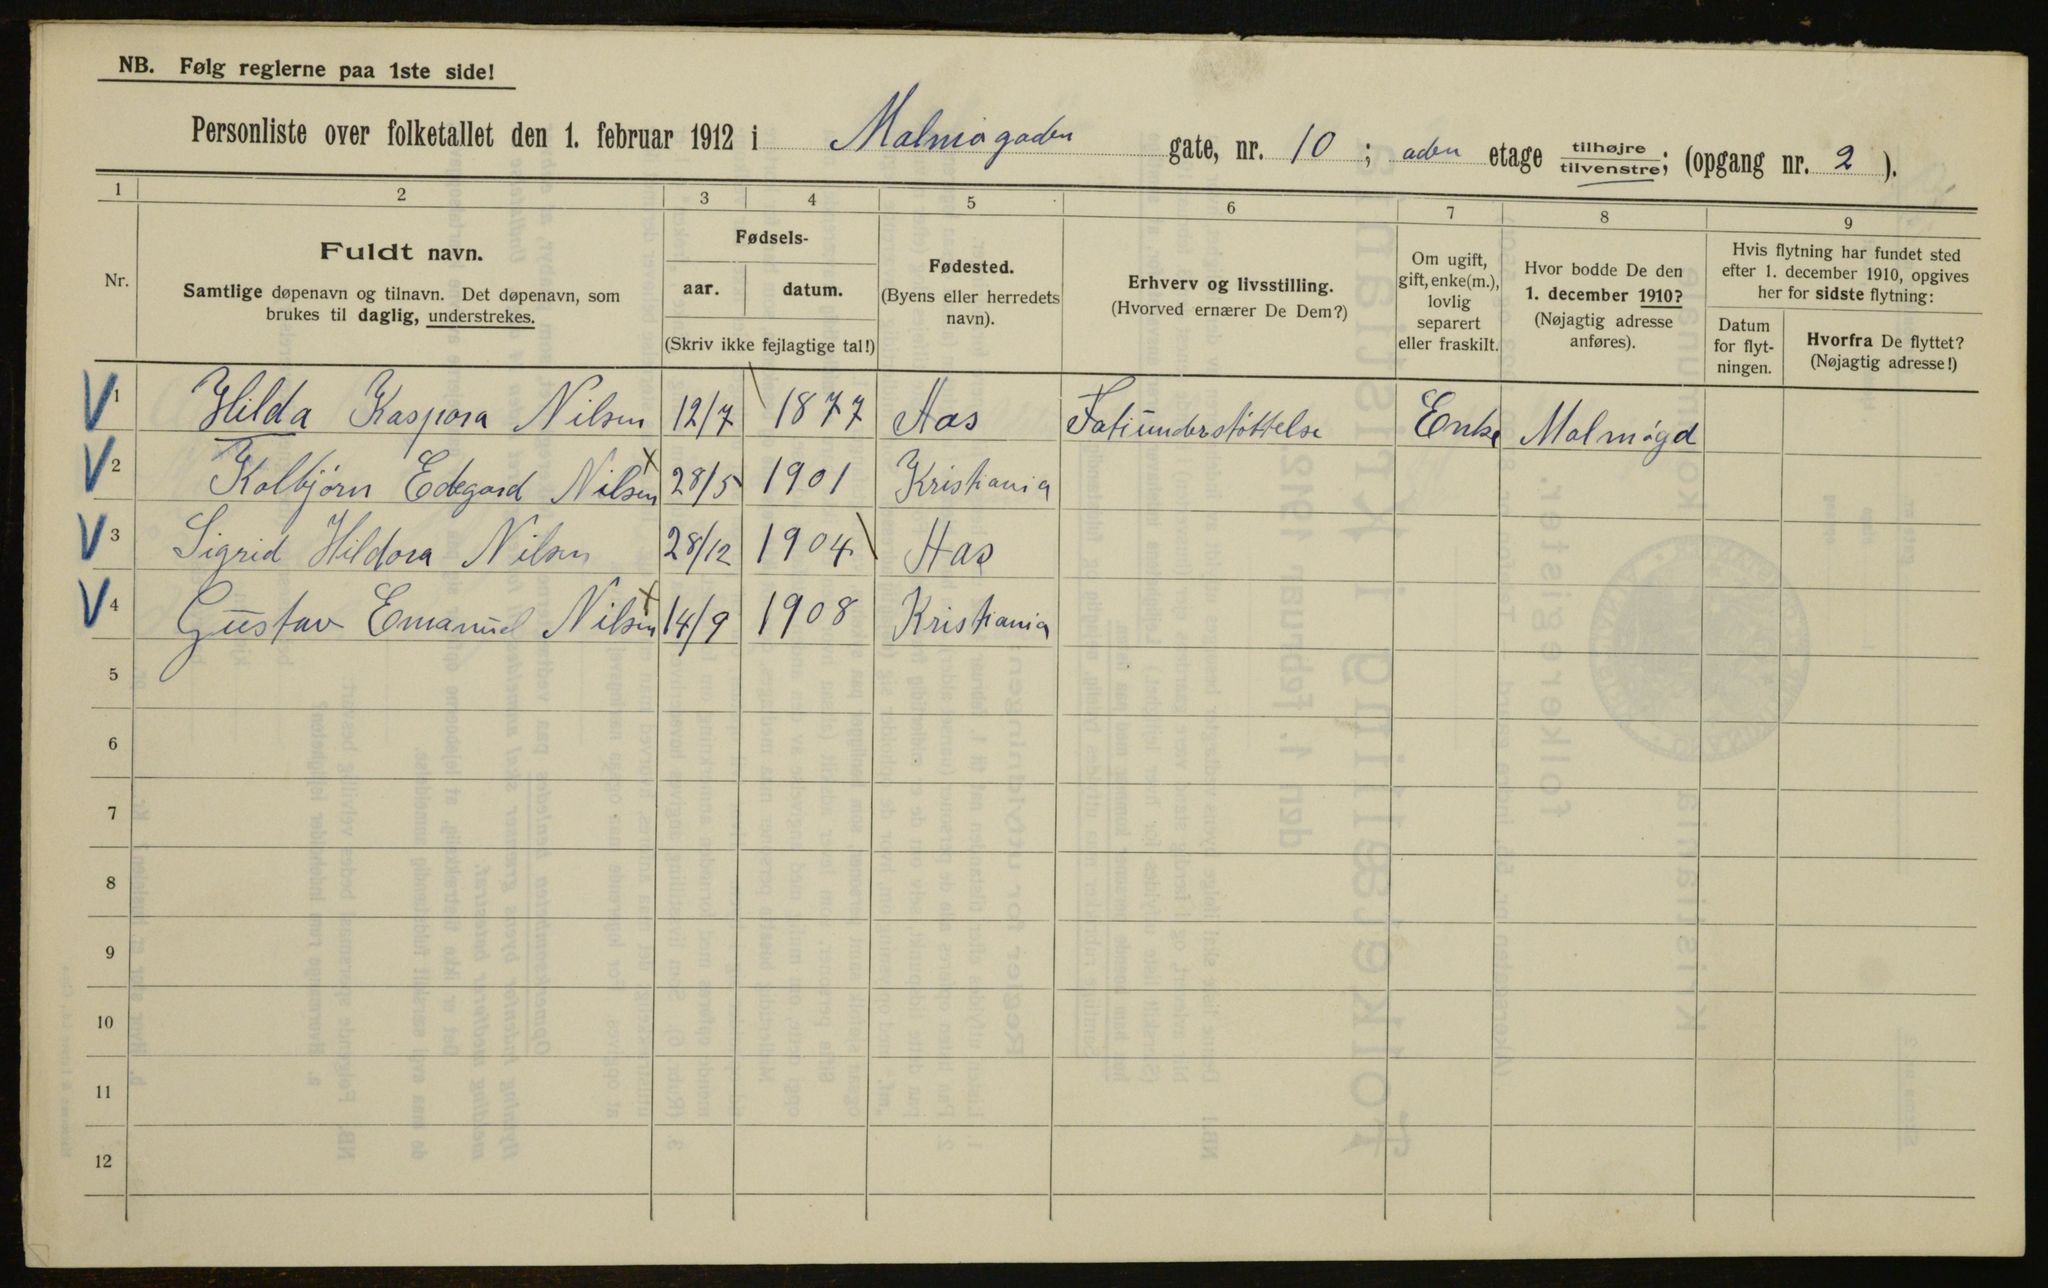 NB. Følg reglerne paa 1ste side!
Personliste over folketallet den 1. februar 1912 i Malmøgaden gate, nr. 10; 2den etage tilhøjre/tilvenstre; (opgang nr. 2).
1 2 3 4 5 6 7 8 9
Nr.
Fuldt navn.
Samtlige døpenavn og tilnavn. Det døpenavn, som
brukes til daglig, understrekes.
Fødsels-
aar. datum.
(Skriv ikke fejlagtige tal!)
Fødested.
(Byens eller herredets
navn).
Erhverv og livsstilling.
(Hvorved ernærer De Dem?)
Om ugift,
gift, enke(m.),
lovlig
separert
eller fraskilt.
Hvor bodde De den
1. december 1910?
(Nøjagtig adresse
anføres).
Hvis flytning har fundet sted
efter 1. december 1910, opgives
her for sidste flytning:
Datum
for flyt-
ningen.
Hvorfra De flyttet?
(Nøjagtig adresse!)
V 1 Hilda Kaspora Nilsen 12/7 1877 Aas Fatiunderstøttelse Enke Malmøgd
V 2 Kolbjørn Edegard Nilsen 28/5 1901 Kristiania
V 3 Sigrid Hildora Nilsen 28/12 1904 Aas
V 4 Gustav Emanuel Nilsen 14/9 1908 Kristiania
5
6
7
8
9
10
11
12